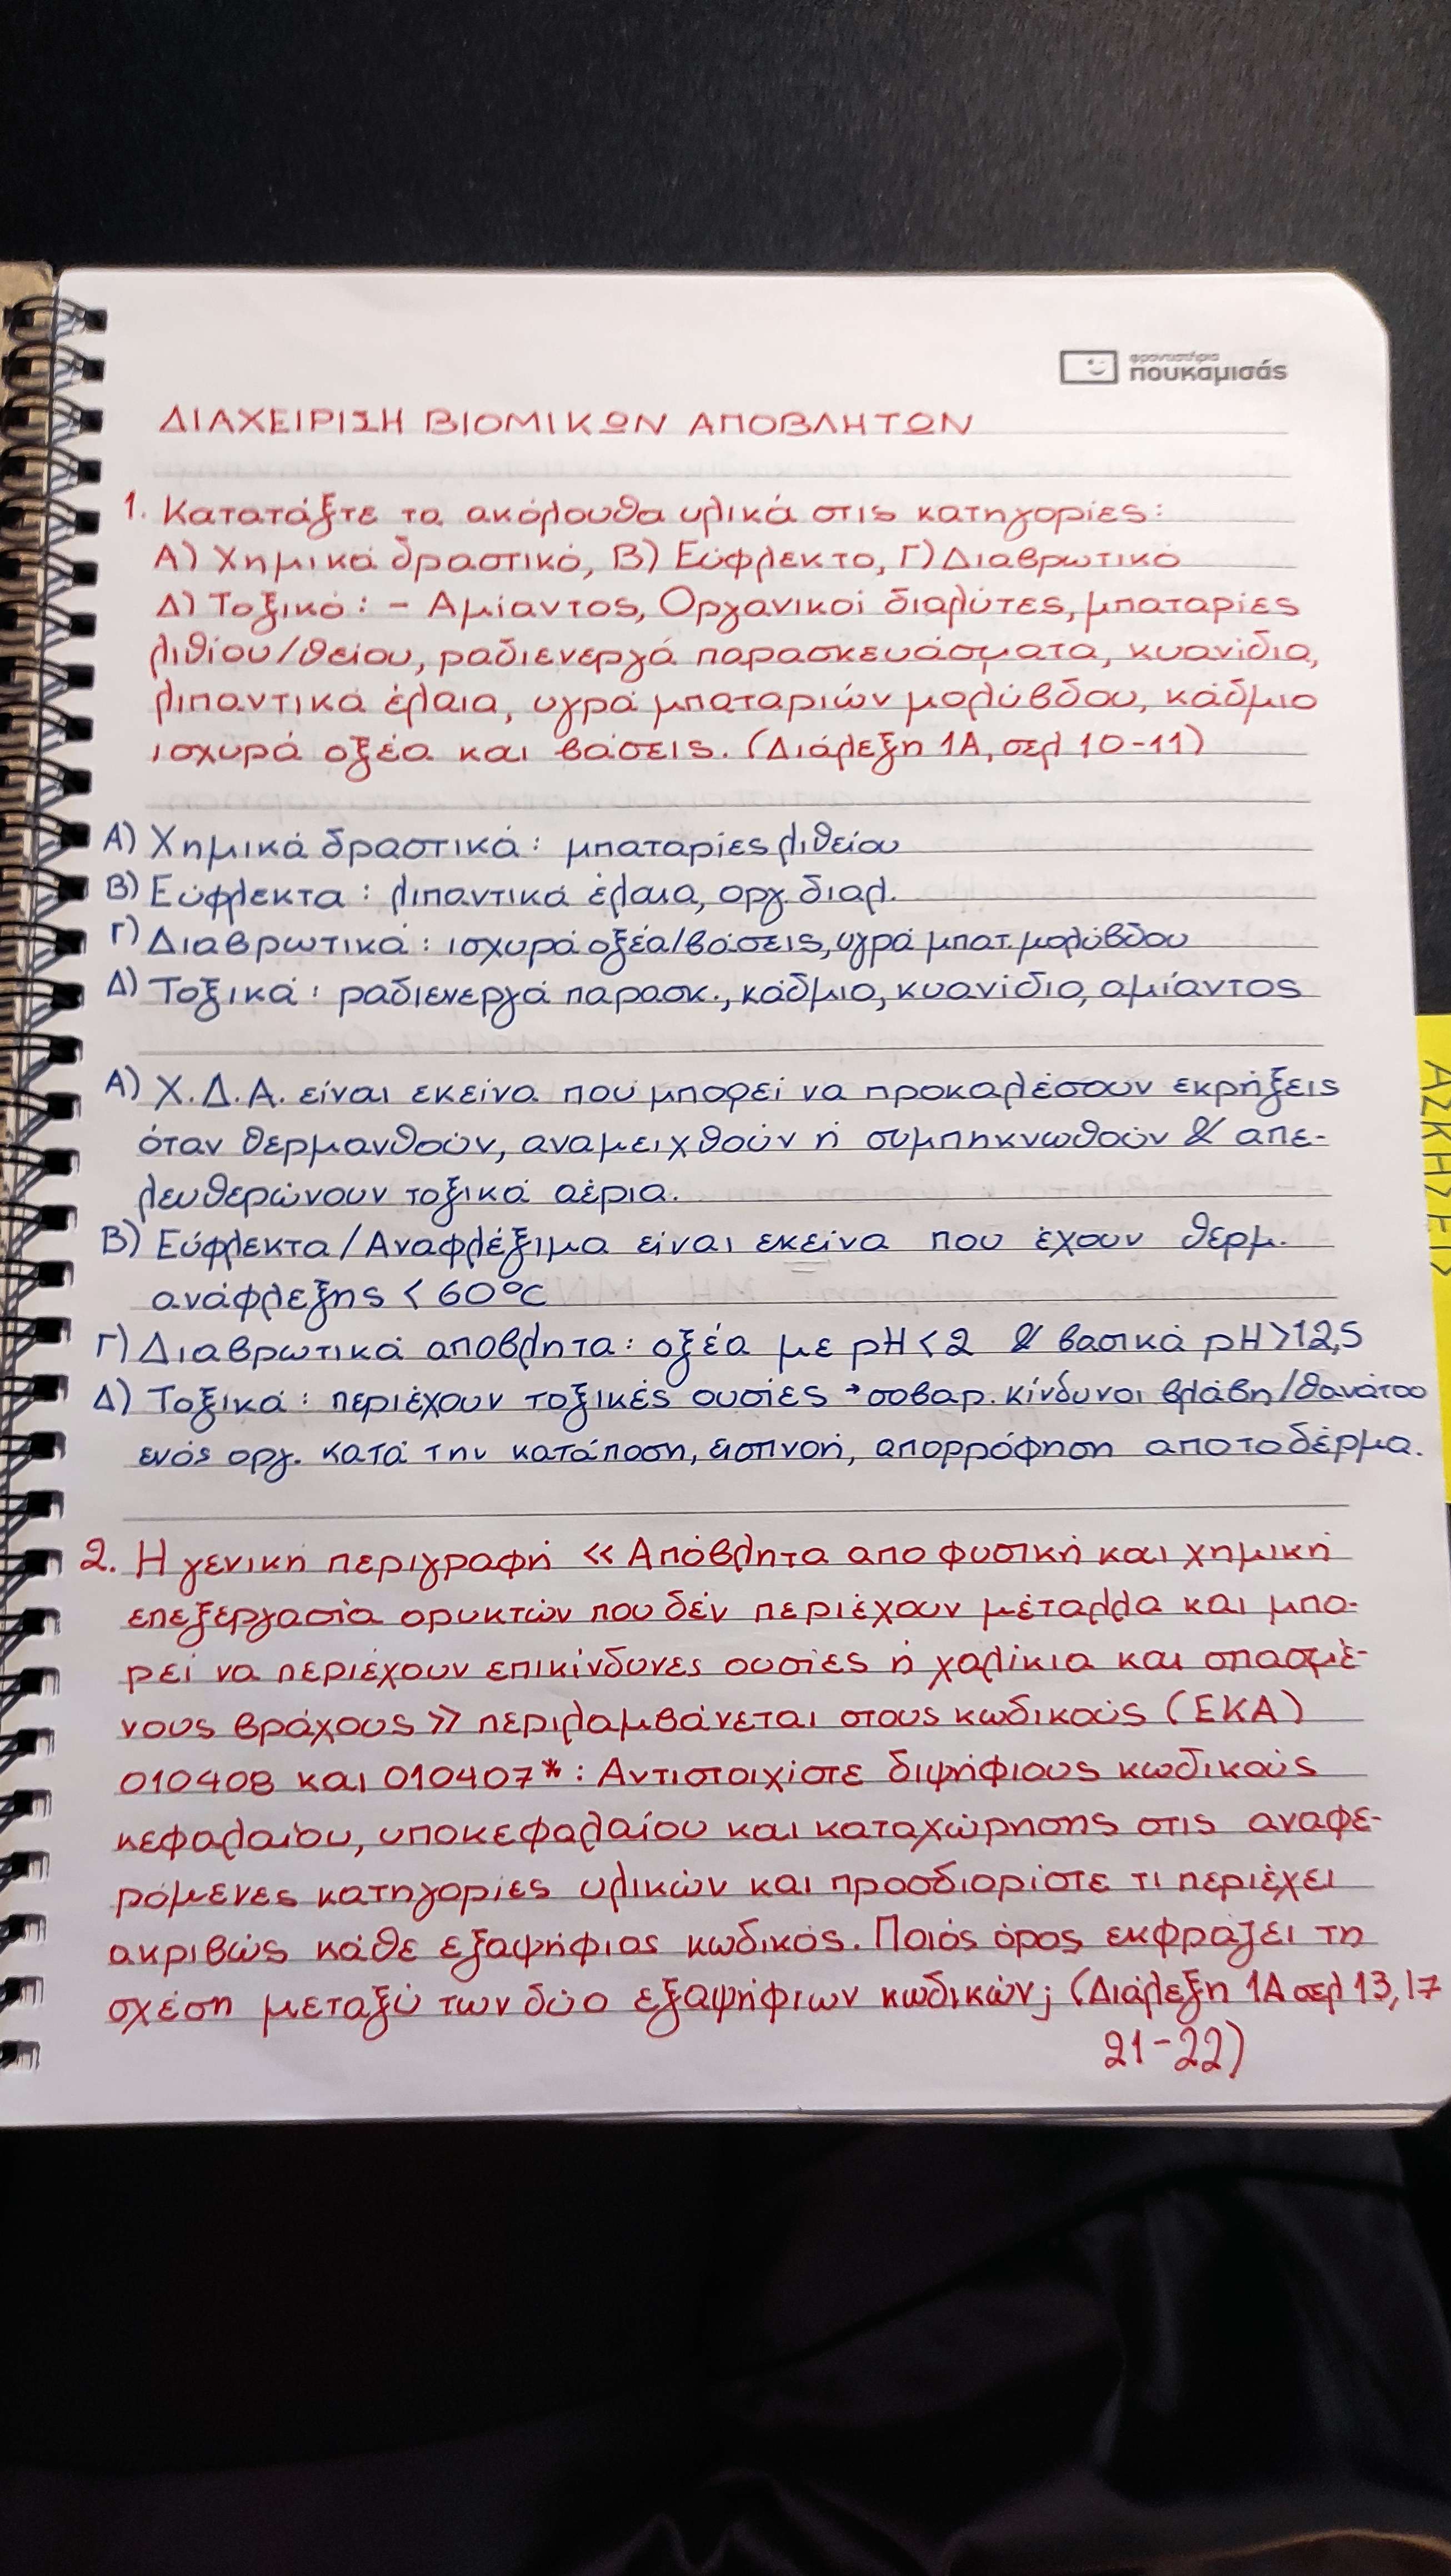 φροντιστήρια
πουκαμισάς
ΔΙΑΧΕΙΡΙΣΗ ΒΙΟΜΙΚΩΝ ΑΠΟΒΛΗΤΩΝ
1. Κατατάξτε τα ακόλουθα υλικά στις κατηγορίες:
Α) Χημικά δραστικό, Β) Εύφλεκτο, Γ) Διαβρωτικό
Δ) Τοξικό: - Αμίαντος, Οργανικοί διαλύτες, μπαταρίες
λιθίου/θείου, ραδιενεργά παρασκευάσματα, κυανίδια,
λιπαντικά έλαια, υγρά μπαταριών μολύβδου, κάδμιο
ισχυρά οξέα και βάσεις. (Διάλεξη 1Α, σελ 10-11)
Α) Χημικά δραστικά: μπαταρίες λιθείου
Β) Εύφλεκτα: λιπαντικά έλαια, οργ. διαλ.
Γ) Διαβρωτικά: ισχυρά οξέα/βάσεις, υγρά μπατ. μολύβδου
Δ) Τοξικά: ραδιενεργά παρασκ., κάδμιο, κυανίδιο, αμίαντος
Α) Χ.Δ.Α. είναι εκείνα που μπορεί να προκαλέσουν εκρήξεις
όταν θερμανθούν, αναμειχθούν ή συμπηκνωθούν & απε-
λευθερώνουν τοξικά αέρια.
Β) Εύφλεκτα/Αναφλέξιμα είναι εκείνα που έχουν θερμ.
ανάφλεξης < 60°C
Γ) Διαβρωτικά απόβλητα: οξέα με pH<2 & βασικά pH>12,5
Δ) Τοξικά: περιέχουν τοξικές ουσίες → σοβαρ. κίνδυνοι βλάβη/θανάτου
ενός οργ. κατά την κατάποση, εισπνοή, απορρόφηση από το δέρμα.
2. Η γενική περιγραφή << Απόβλητα απο φυσική και χημική
επεξεργασία ορυκτών που δέν περιέχουν μέταλλα και μπο-
ρεί να περιέχουν επικίνδυνες ουσίες ή χαλίκια και σπασμέ-
νους βράχους >> περιλαμβάνεται στους κωδικούς (ΕΚΑ)
010408 και 010407*: Αντιστοιχίστε διψήφιους κωδικούς
κεφαλαίου, υποκεφαλαίου και καταχώρησης στις αναφε-
ρόμενες κατηγορίες υλικών και προσδιορίστε τι περιέχει
ακριβώς κάθε εξαψήφιος κωδικός. Ποιός όρος εκφράζει τη
σχέση μεταξύ των δύο εξαψήφιων κωδικών; (Διάλεξη 1Α σελ 13, 17
21-22)
ΑΣΚΗΣΕΙΣ